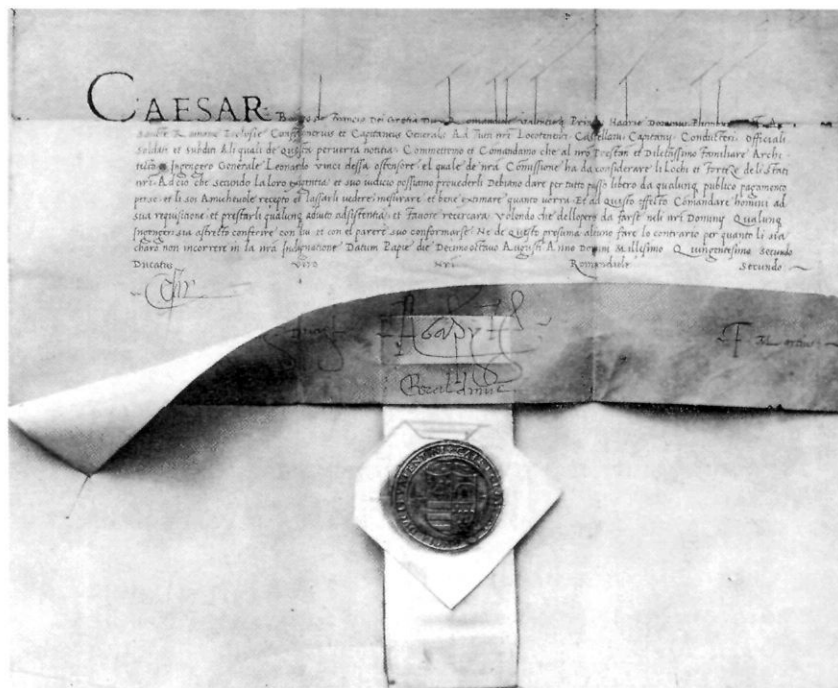 CAESAR Borgia de Francia Dei Gratia Dux Romandiole Valencieq Princeps Hadrie Dominus Plumbini
Sancte Romane Ecclesie Confalonerius et Capitaneus Generalis Ad Tuti nri Locotenenti Castellani Capitany Conducteri officiali
Soldati et subditi A li quali de questa perverra notitia Commettemo et Comandamo che al nro Dilectissimo Familiare Archi-
tecto Ingengero Generale Leonardo Vinci dessa ostensore el quale de nra Comissione ha da considerare li Lochi et forteze de li Stati
nri Ad cio che secundo la loro exigentia et suo iudicio possiamo provederli Debiano dare per tutto passo libero da qualunq publico pagamento
per se et li soi Amichevole recepto et lassarli vedere misurare et bene extimare quanto vorra Et ad questo effecto Comandare homini ad
sua requisitione et prestarli qualunq adiuto adsistentia et favore recercara Volendo che dellopere da farse neli nri Dominij Qualunq
Ingengeri sia astrecto conferire con lui et con el parere suo conformarse Ne de questo presuma alcuno fare lo contrario per quanto li sia
charo non incorrere in la nra Indignatione Datum Papie die Decimo octavo Augusti Anno Domini Millesimo Quingentesimo Secundo
Ducatus vero Nri Romandiole Secundo
Agapy